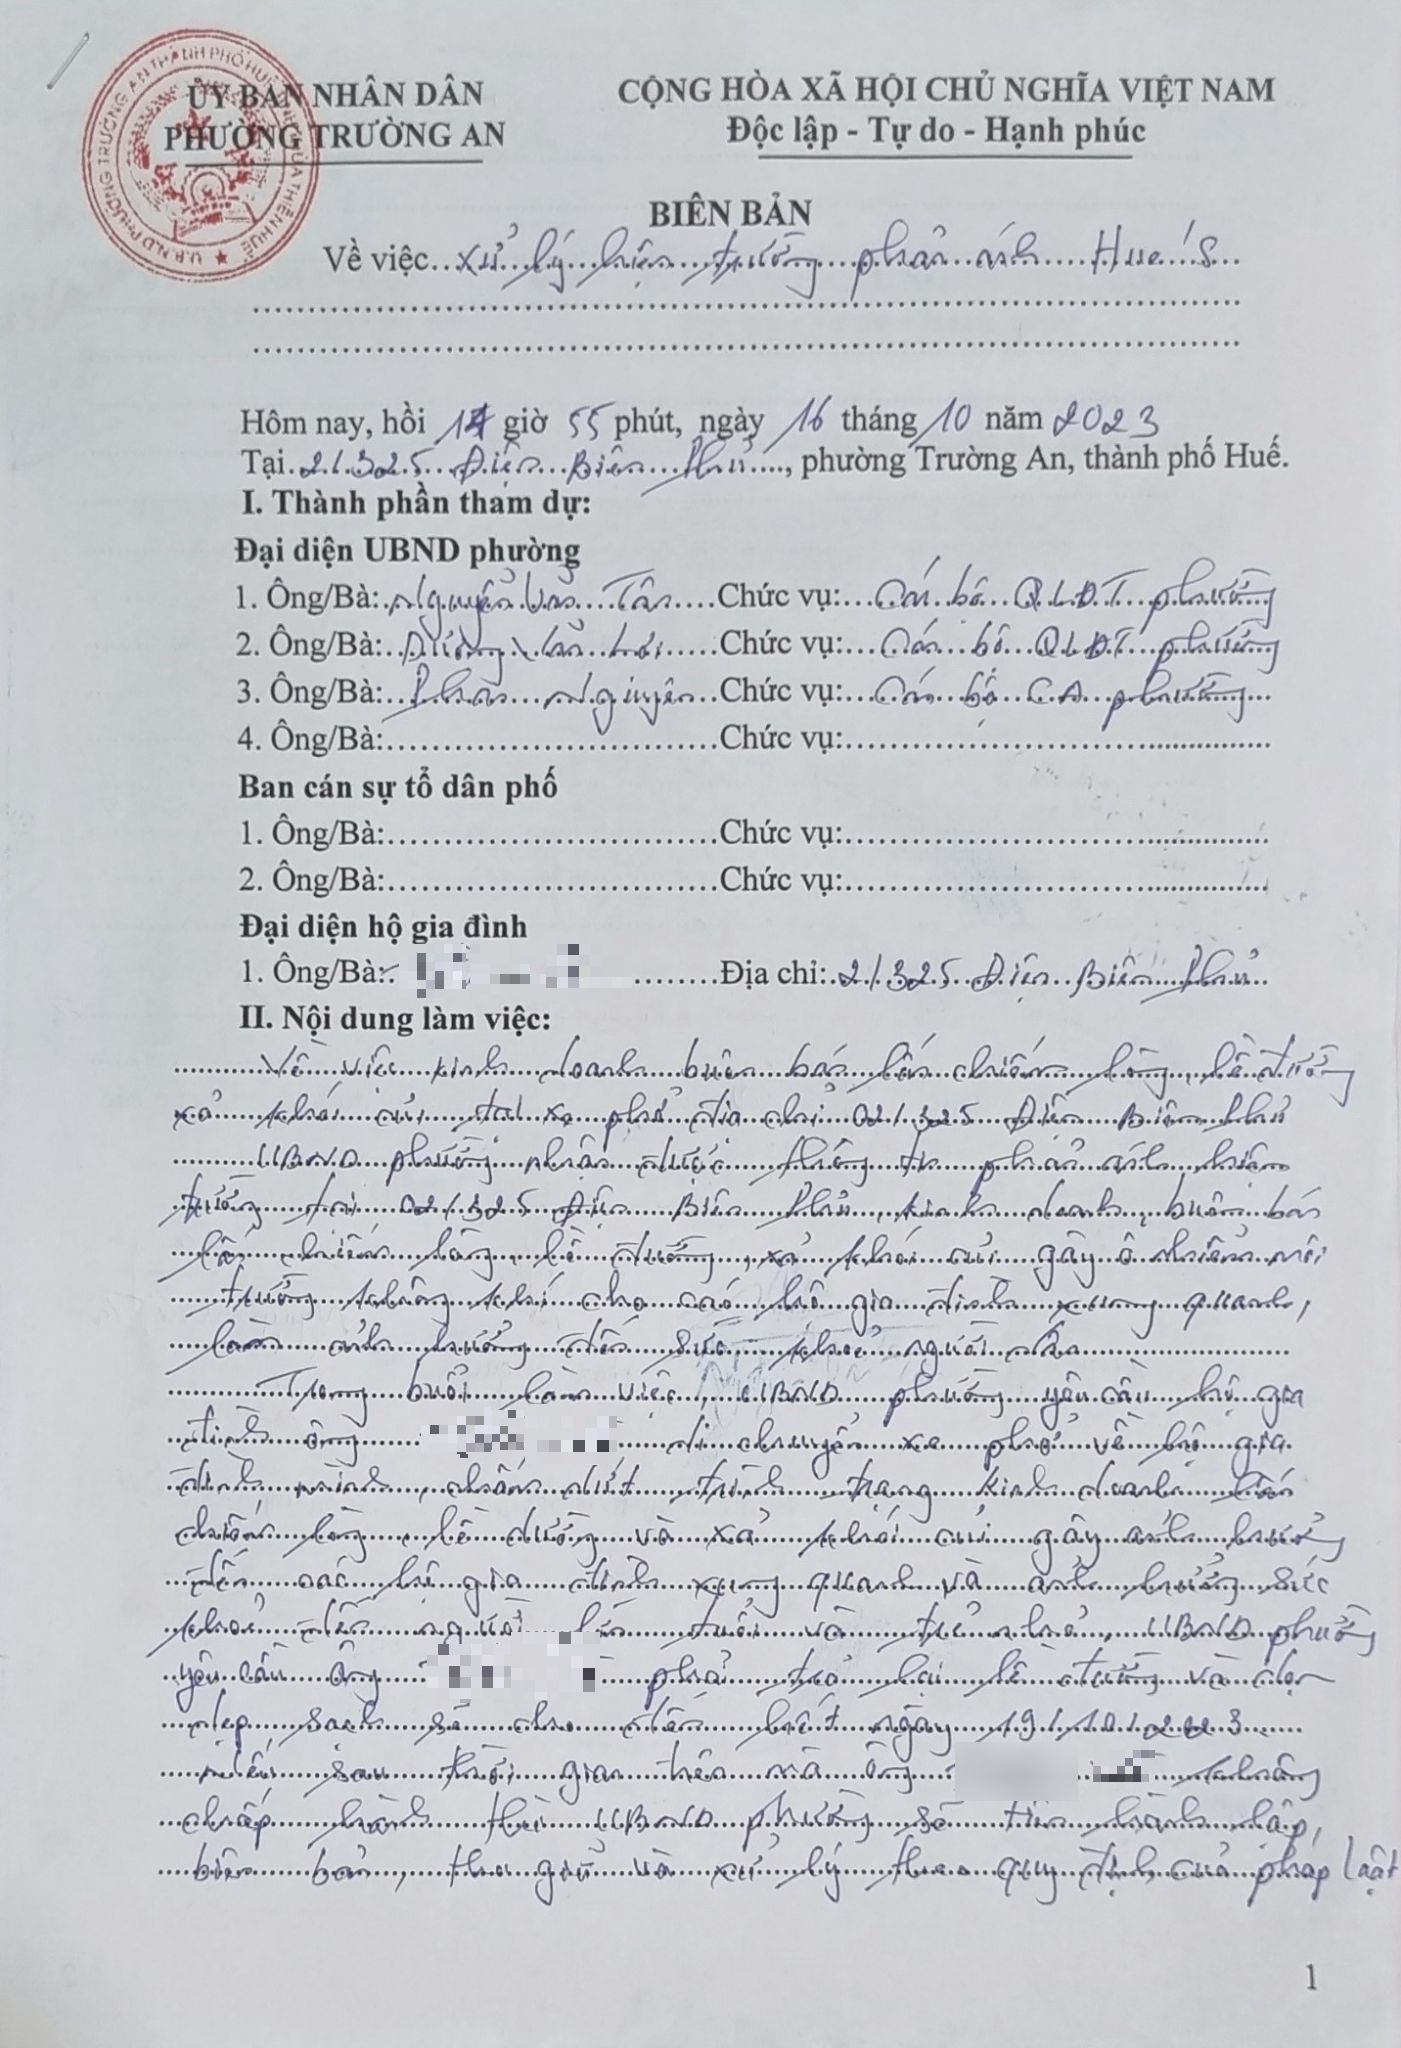 ỦY BAN NHÂN DÂN
PHƯỜNG TRƯỜNG AN
CỘNG HÒA XÃ HỘI CHỦ NGHĨA VIỆT NAM
Độc lập - Tự do - Hạnh phúc
U.B.N.D PHƯỜNG TRƯỜNG AN THÀNH PHỐ HUẾ THỪA THIÊN HUẾ
BIÊN BẢN
Về việc xử lý hiện trường phản ánh Hue S
Hôm nay, hồi giờ 55 phút, ngày 16 tháng 10 năm 2023
Tại 2/325 Điện Biên Phủ, phường Trường An, thành phố Huế.
I. Thành phần tham dự:
Đại diện UBND phường
1. Ông/Bà: Nguyễn Văn Tân Chức vụ: Cán bộ QLĐT phường
2. Ông/Bà: Dương Chức vụ: Cán bộ QLĐT phường
3. Ông/Bà: Phan Nguyên Chức vụ: Cán bộ CA phường
4. Ông/Bà: Chức vụ:
Ban cán sự tổ dân phố
1. Ông/Bà: Chức vụ:
2. Ông/Bà: Chức vụ:
Đại diện hộ gia đình
1. Ông/Bà: Địa chỉ: 2/325 Điện Biên Phủ
II. Nội dung làm việc:
Về việc kinh doanh buôn bán lấn chiếm lòng, lề đường
xả khói củi tại xe phở địa chỉ 02/325 Điện Biên Phủ
UBND phường nhận được thông tin phản ánh hiện
trường tại 02/325 Điện Biên Phủ, kinh doanh, buôn bán
lấn chiếm lòng, lề đường, xả khói củi gây ô nhiễm môi
trường không khí cho các hộ gia đình xung quanh,
làm ảnh hưởng đến sức khỏe người dân
Trong buổi làm việc, UBND phường yêu cầu hộ gia
đình ông di chuyển xe phở về hộ gia
đình mình, chấm dứt tình trạng kinh doanh lấn
chiếm lòng, lề đường và xả khói củi gây ảnh hưởng
đến các hộ gia đình xung quanh và ảnh hưởng sức
khỏe đến người lớn tuổi và trẻ nhỏ, UBND phường
yêu cầu ông phải trả lại lề đường và dọn
dẹp sạch sẽ cho đến hết ngày 19/10/2023
Nếu sau thời gian trên mà ông không
chấp hành thì UBND phường sẽ tiến hành lập
biên bản, thu giữ và xử lý theo quy định của pháp luật
1